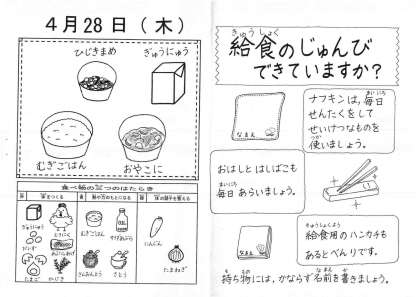 4月28日（木）
ひじきまめ
ぎゅうにゅう
むぎごはん
おやこに
食べ物の三つのはたらき
ぎゅうにゅう
とりにく
だいず
たまご
ひじき
むぎごはん
さとう
にんじん
たまねぎ
給食のじゅんび
きゅうしょく
できていますか？
なまえ
ナフキンは、毎日
まいにち
せんたくをして
せいけつなものを
使いましょう。
つか
おはしとはしばこも
毎日あらいましょう。
まいにち
きゅうしょくよう
給食用のハンカチも
あるとべんりです。
持ち物には、かならず名前を書きましょう。